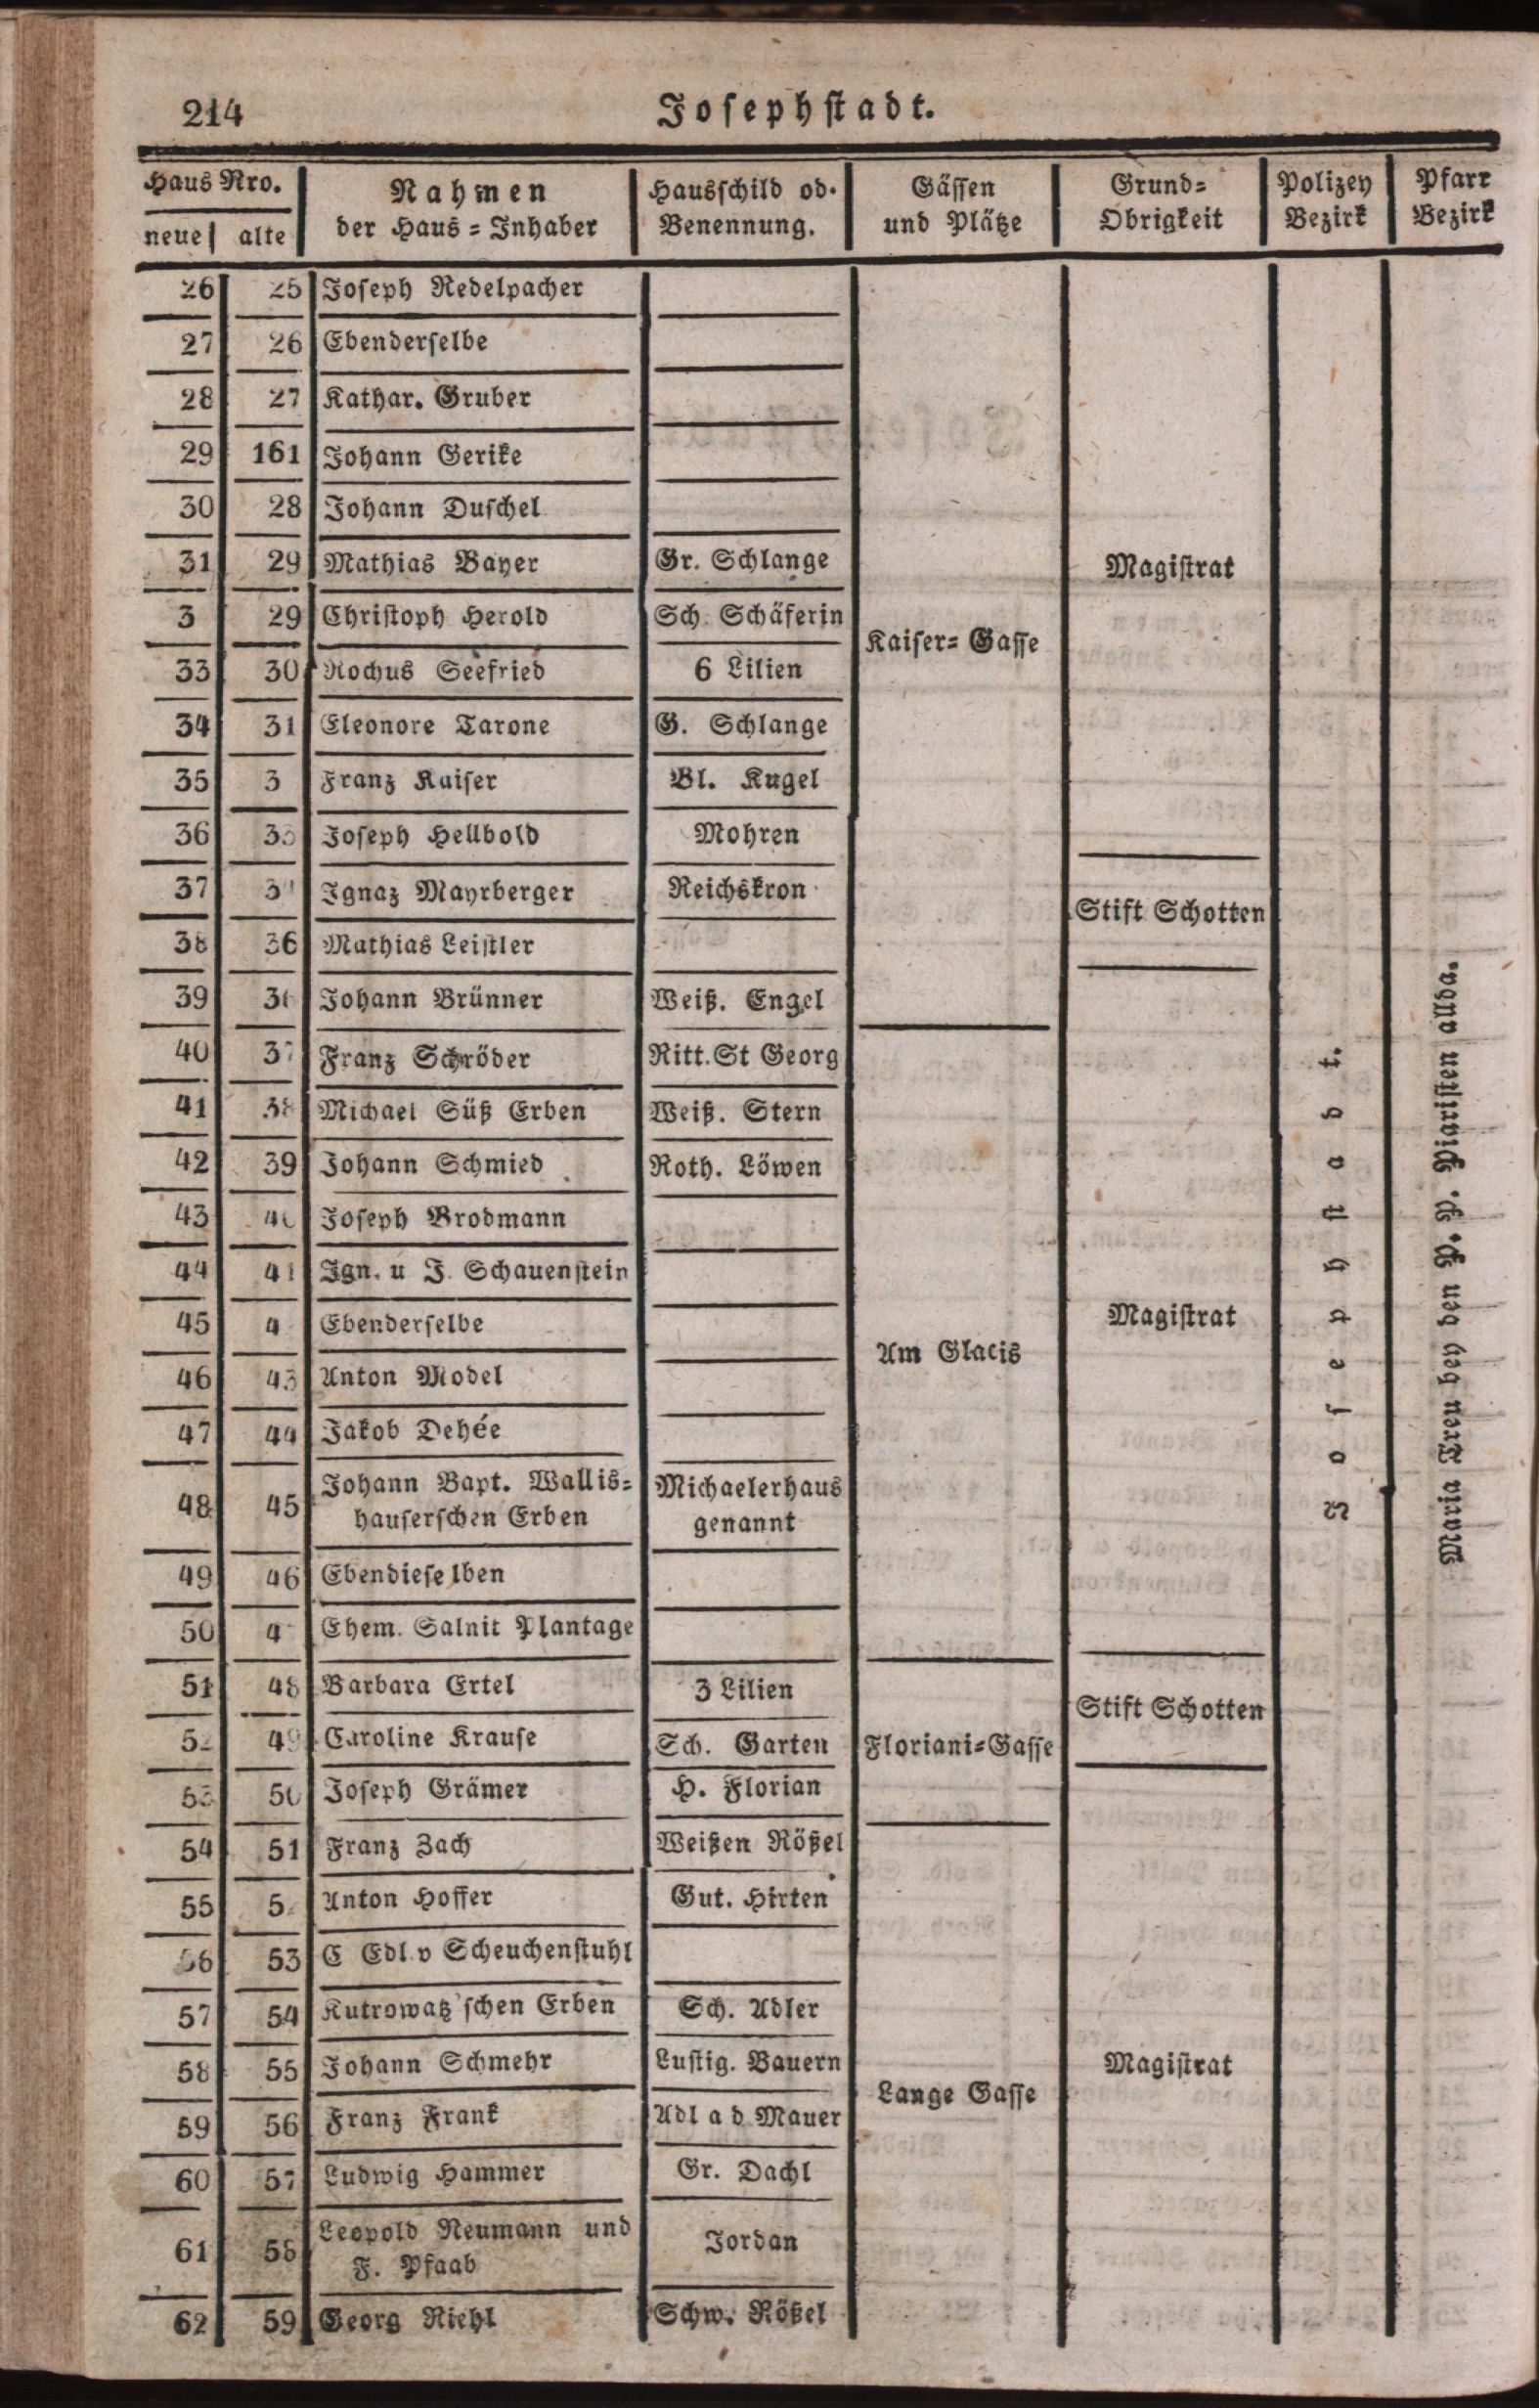 214
Josephstadt.
Haus Nro. Nahmen Hausschild od. Gässen Grund= Polizey Pfarr
neue alte der Haus = Inhaber Benennung. und Plätze Obrigkeit Bezirk Bezirk
26 25 Joseph Redelpacher
27 26 Ebenderselbe
28 27 Kathar. Gruber
29 161 Johann Gerike
30 28 Johann Duschel
31 29 Mathias Bayer Gr. Schlange
Magistrat
3 29 Christoph Herold Sch. Schäferin
Kaiser= Gasse
33 30 Rochus Seefried 6 Lilien
34 31 Eleonore Tarone G. Schlange
35 3 Franz Kaiser Bl. Kugel
36 Joseph Hellbold Mohren
37 Ignaz Mayrberger Reichskron
Stift Schotten
38 36 Mathias Leistler
39 Johann Brünner Weiß. Engel
40 37 Franz Schröder Ritt. St Georg
41 38 Michael Süß Erben Weiß. Stern
42 39 Johann Schmied Roth. Löwen
43 Joseph Brodmann
44 41 Ign. u J. Schauenstein
45 4 Ebenderselbe
Magistrat
Am Glacis
46 43 Anton Model
47 44 Jakob Dehée
48 45 Johann Bapt. Wallis= Michaelerhaus
hauserschen Erben genannt
49 46 Ebendieselben
50 4 Chem. Salnit Plantage
51 48 Barbara Ertel 3 Lilien
Stift Schotten
5 49 Caroline Krause Sch. Garten Floriani=Gasse
53 50 Joseph Grämer H. Florian
54 51 Franz Zach Weißen Rößel
55 5 Anton Hoffer Gut. Hirten
56 53 C Edl. v Scheuchenstuhl
57 54 Kutrowatz'schen Erben Sch. Adler
58 55 Johann Schmehr Lustig. Bauern
Magistrat
Lange Gasse
59 56 Franz Frank Adl a d Mauer
60 57 Ludwig Hammer Gr. Dachl
61 58 Leopold Neumann und Jordan
F. Pfaab
62 59 Georg Riehl Schw. Rößel
Josephstadt.
Maria Treu bey den P. P. Piaristen allda.